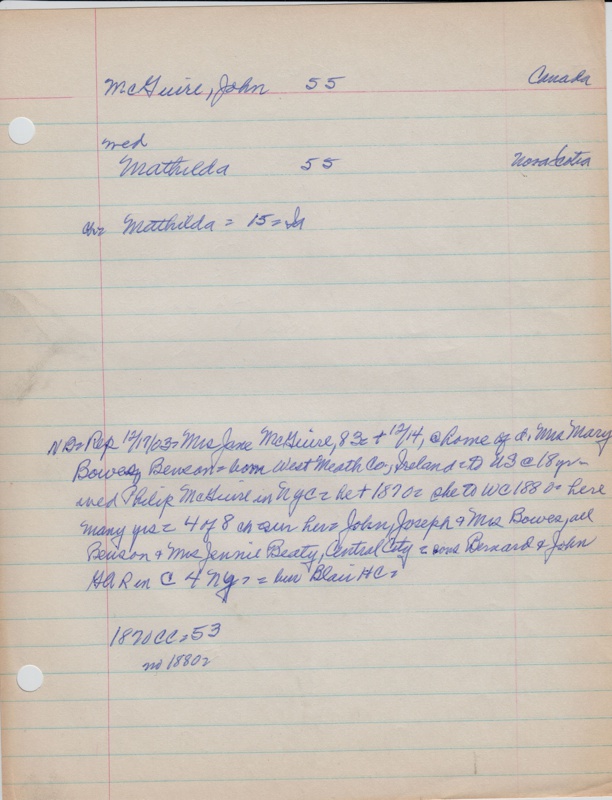 McGuire, John 55 Canada
med
Mathilda 55 Nova Scotia
ch= Mathilda = 15 = Ia
NB= Rep 12/17/03= Mrs Jane McGuire, 83= + 12/14, @ home of d. Mrs Mary
Bowes, Benson = born West Meath Co, Ireland = to US @ 18 yr=
med Philip McGuire in NyC = he + 1870= she to WC 1880= here
many yrs = 4 of 8 ch sur her= John, Joseph + Mrs Bowes, all
Benson + Mrs Jennie Beaty, Central City = sons Bernard & John
in C 4 Ny= = bur Blair HC=
1870 CC = 53
no 1880=